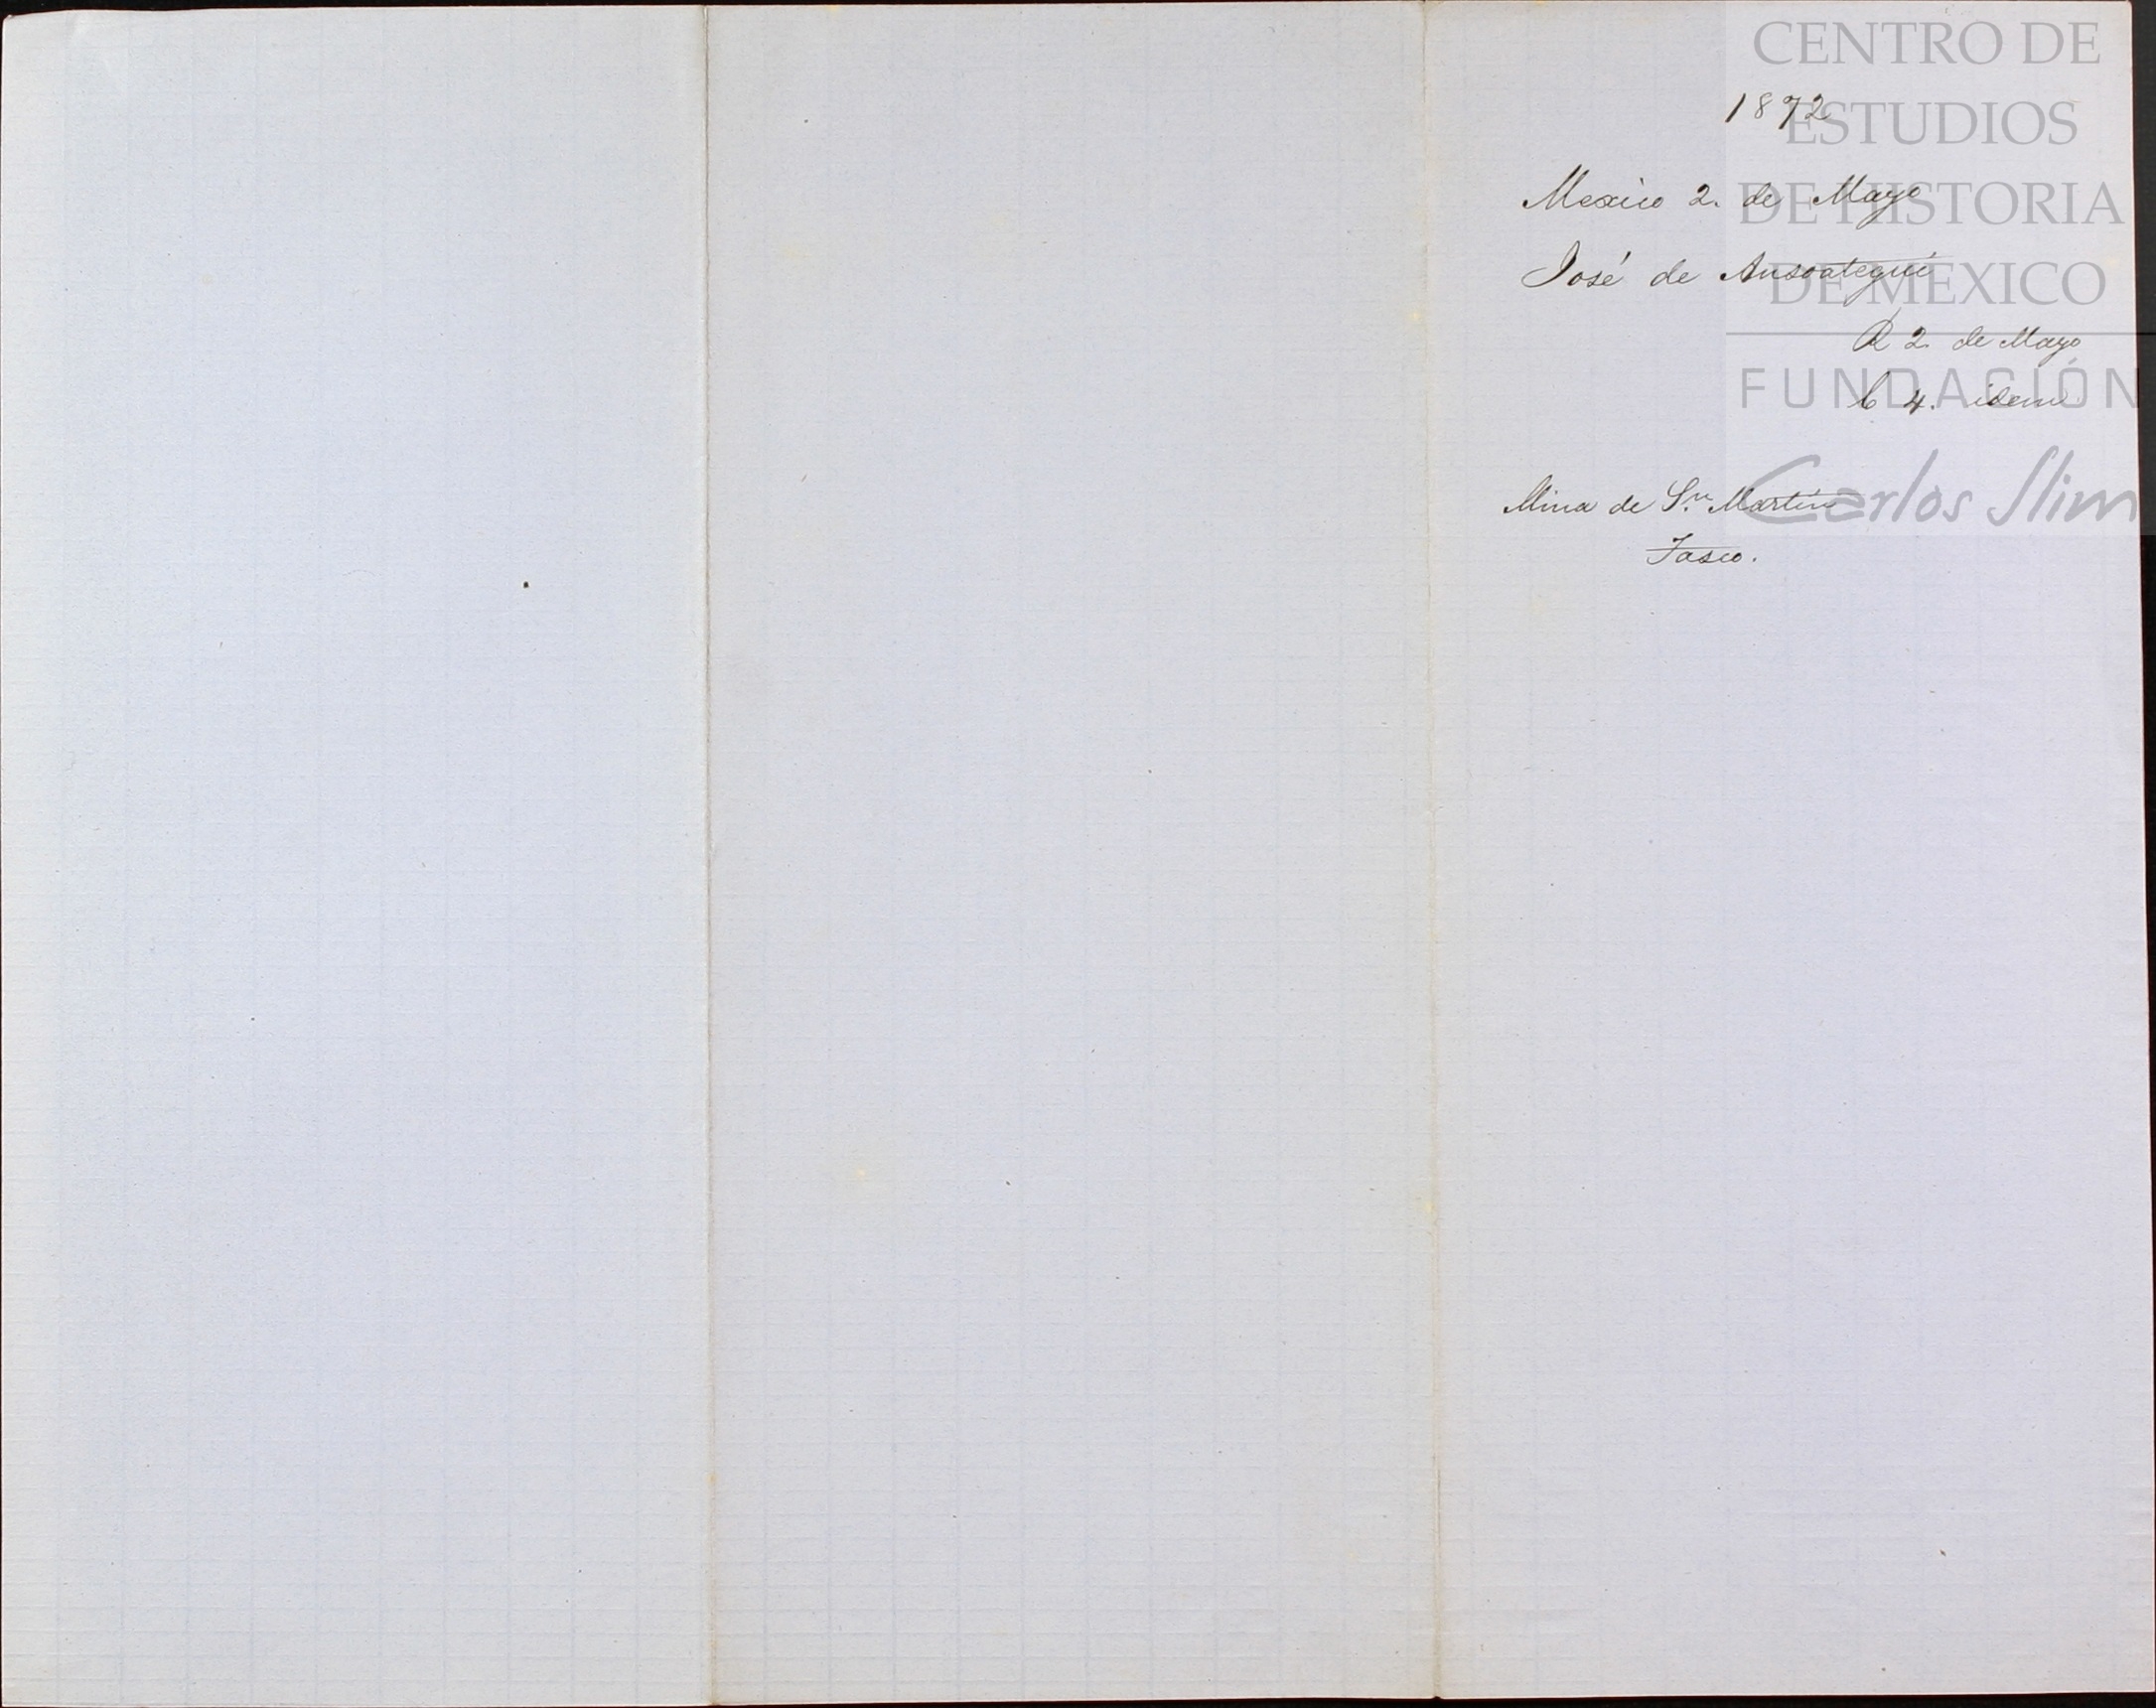 1872
Mexico 2. de Mayo
José de Ansoategui
R 2. de Mayo
C 4. idem
Mina de Sn. Martin
Tasco.
CENTRO DE
ESTUDIOS
DE HISTORIA
DE MEXICO
FUNDACIÓN
Carlos Slim